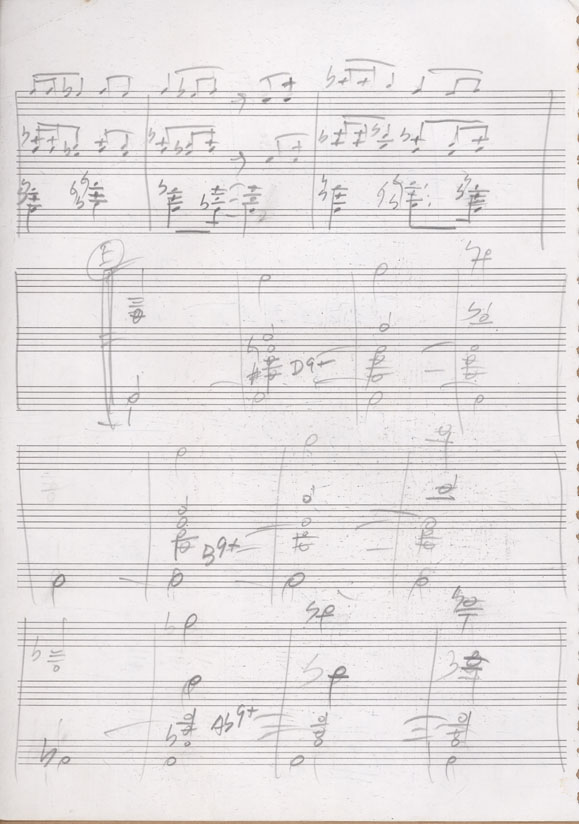 E
D9+
B9+
Ab9+